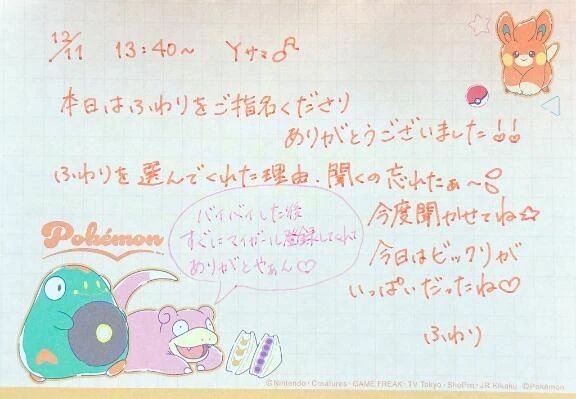 12/11 13:40〜 Yサマ♂
本日はふわりをご指名くださり
ありがとうございました!!
ふわりを選んでくれた理由、聞くの忘れたぁ〜
今度聞かせてね☆
バイバイした後
すぐにマイガール登録してくれて
ありがとやぁん♡
Pokémon
今日はビックリが
いっぱいだったね♡
ふわり
©Nintendo・Creatures・GAME FREAK・TV Tokyo・ShoPro・JR Kikaku ©Pokémon